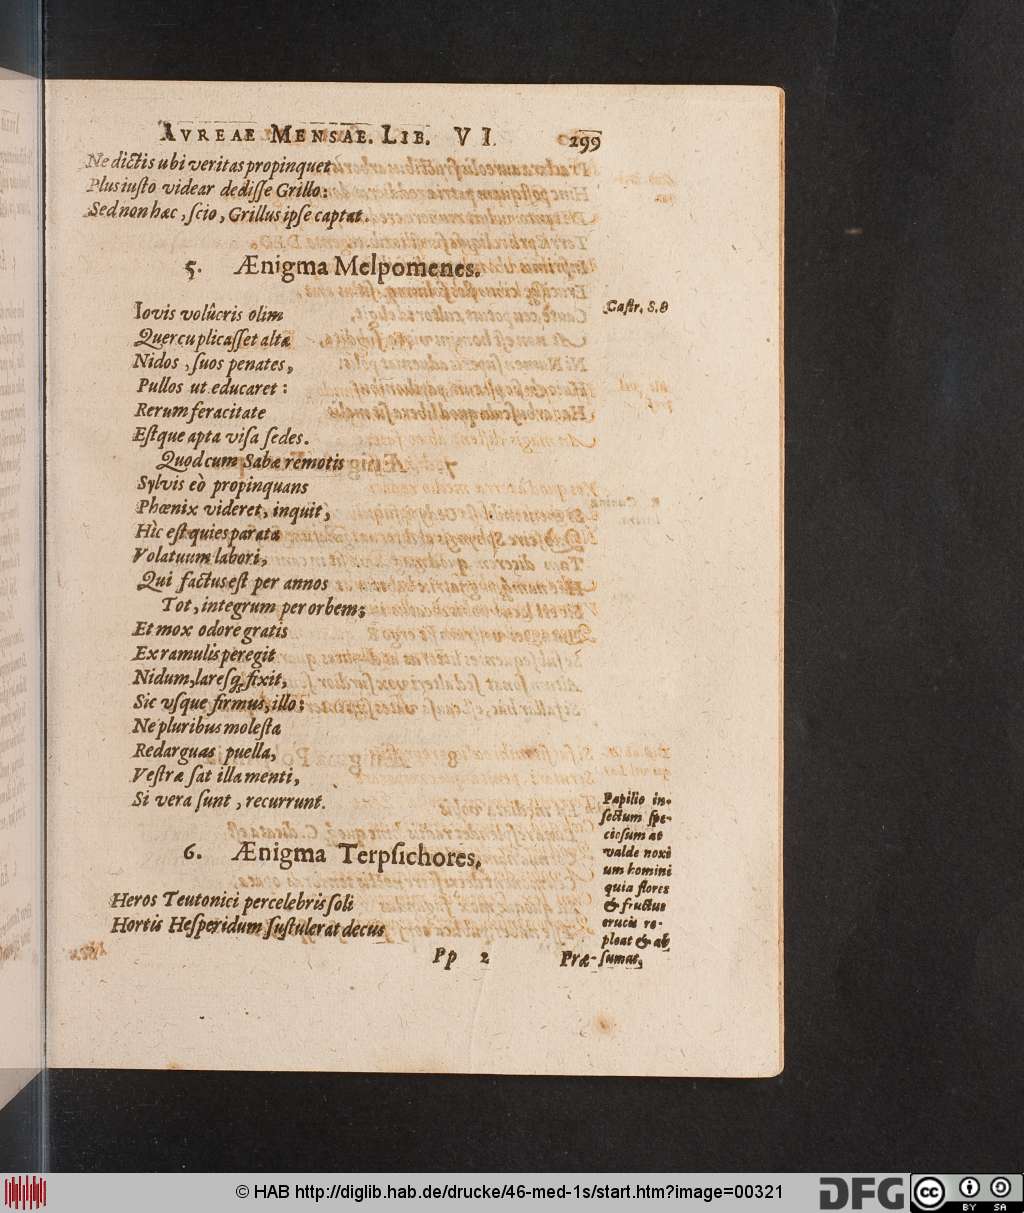 AVREAE MENSAE. LIB. VI. 299
Ne dictis ubi veritas propinquet
Plus iusto videar dedisse Grillo:
Sed non hæc, scio, Grillus ipse captat.
5. Ænigma Melpomenes.
Iovis volûcris olim
Quercu plicasset altæ
Nidos, suos penates,
Pullos ut educaret:
Rerum feracitate
Estque apta visa sedes.
Quod cum Sabæ remotis
Sylvis eò propinquans
Phœnix videret, inquit,
Hîc est quies parata
Volatuum labori,
Qui factus est per annos
Tot, integrum per orbem;
Et mox odore gratis
Ex ramulis peregit
Nidum, laresq; fixit,
Sic vsque firmus, illo;
Ne pluribus molesta
Redarguas puella,
Vestræ sat illa menti,
Si vera sunt, recurrunt.
Castr. S. D
6. Ænigma Terpsichores.
Heros Teutonici percelebris soli
Hortis Hesperidum sustulerat decus
Papilio in-
sectum spe-
ciosum at
valde noxi
um homini
quia flores
& fructus
erucis re-
pleat & ab
sumat,
Pp 2 Præ-
© HAB http://diglib.hab.de/drucke/46-med-1s/start.htm?image=00321
DFG
cc
BY SA